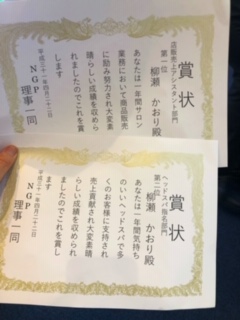 賞状
店販売上アシスタント部門
第一位
柳瀬 かおり殿
あなたは一年間サロン
業務において商品販売
に励み努力され大変素
晴らしい成績を収めら
れましたのでこれを賞
します
平成三十一年四月二十二日
NGP
理事一同
賞状
ヘッドスパ指名部門
第二位
柳瀬 かおり殿
あなたは一年間気持ち
のいいヘッドスパで多
くのお客様に支持され
売上貢献され大変素晴
らしい成績を収められ
ましたのでこれを賞し
ます
平成三十一年四月二十二日
NGP
理事一同